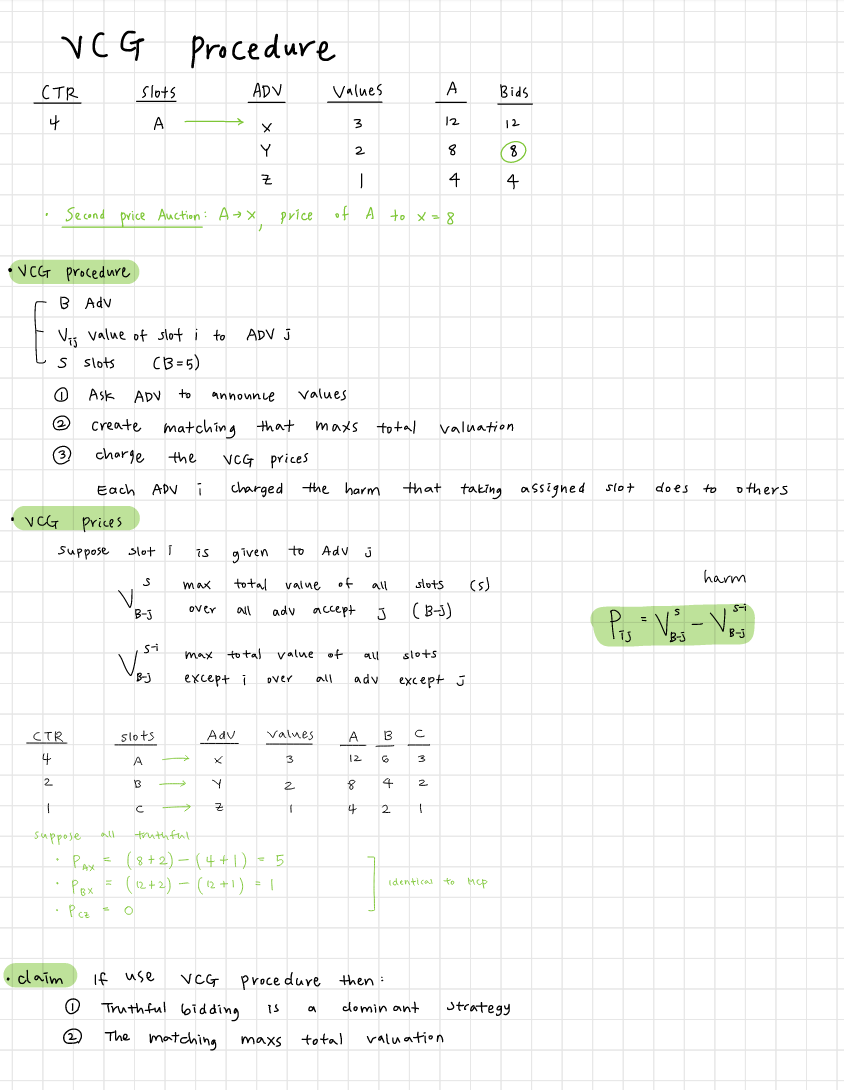 VCG Procedure
CTR Slots ADV Values A Bids
4 A → X 3 12 12
Y 2 8 8
Z 1 4 4
· Second price Auction: A → X, price of A to X = 8
• VCG procedure
B Adv
V_ij value of slot i to ADV j
S slots (B=S)
① Ask ADV to announce values
② create matching that maxs total valuation
③ charge the VCG prices
Each ADV i charged the harm that taking assigned slot does to others
• VCG prices
Suppose slot i is given to Adv j
V^S_B-j max total value of all slots (S)
over all adv accept j (B-j)
harm
P_ij = V^S_B-j − V^S-i_B-j
V^S-i_B-j max total value of all slots
except i over all adv except j
CTR slots Adv values A B C
4 A → X 3 12 6 3
2 B → Y 2 8 4 2
1 C → Z 1 4 2 1
suppose all truthful
· P_AX = (8+2) − (4+1) = 5
· P_BX = (12+2) − (12+1) = 1
identical to MCP
· P_CZ = 0
• claim If use VCG procedure then:
① Truthful bidding is a dominant strategy
② The matching maxs total valuation